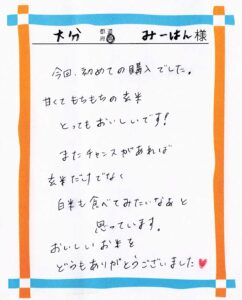 大分 都道府県 みーはん様
今回、初めての購入でした。
甘くてもちもちの玄米
とってもおいしいです!
またチャンスがあれば
玄米だけでなく
白米も食べてみたいなぁと
思っています。
おいしいお米を
どうもありがとうございました♥